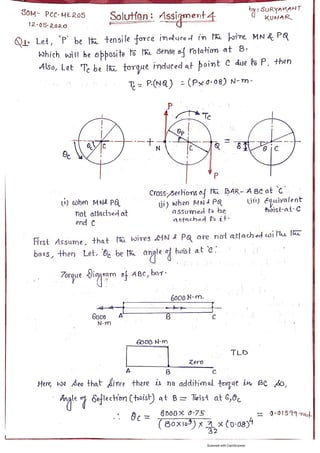 SOM- PCC-ME205
12-05-2020
Solution: Assignment 4
by: SURYAKANT KUMAR
Q1. Let, 'P' be the tensile force induced in the wire MN & PQ
which will be opposite to the sense of rotation at B.
Also, Let Tc be the torque induced at point C due to P, then
Tc = P.(NQ) = (P×0.08) N-m.
P
Tc
θc
C
+
N
θP
C
Q
=
B
θ
C
P
Cross-sections of the BAR- ABC at 'C'
(i) when MN & PQ
not attached at
end C
(ii) when MN & PQ
assumed to be
attached to it.
(iii) Equivalent
twist-at-C
First Assume, that the wires MN & PQ are not attached with the
bars, then Let, θc be the angle of twist at 'C'.
Torque Diagram of ABC, bar.
6000 N-m.
6000
N-m
A
B
C
6000 N-m
Zero
TLD
A
B
C
Here, we see that since there is no additional torque in BC so,
Angle of deflection (twist) at B = Twist at C, θc
∴ θc = 6000 × 0.75 / (80×10⁹) × π/32 × (0.08)⁴ = 0.01399 rad.
Scanned with CamScanner